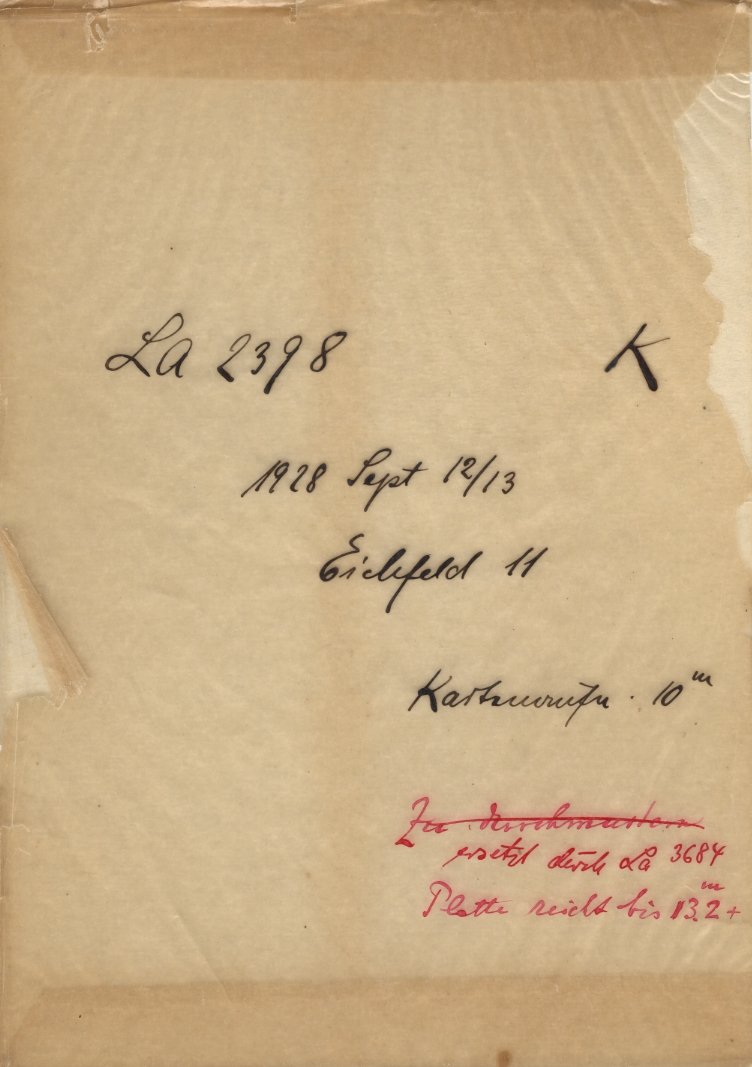 La 2398 K
1928 Sept 12/13
Eichfeld 11
10ᵐ
Zu durchmustern
ersetzt durch La 3684
Platte reicht bis 13.2ᵐ+